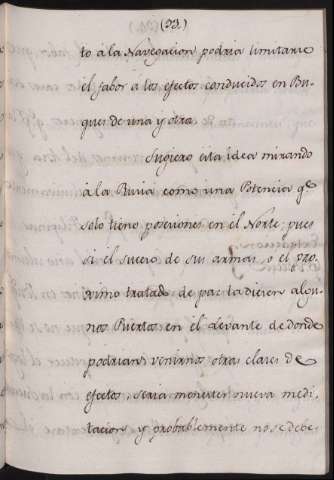 (33.)
to à la Navegacion podria limitarse
el fabor à los efectos conducidos en Bu-
ques de una y otra.
Sugiero esta idea mirando
à la Rusia como una Potencia qe
solo tiene posesiones en el Norte; pues
si el suceso de sus armas, o el pro-
ximo tratado de paz la diesen algu-
nos Puertos en el Levante de donde
podrian venirnos otras clases de
efectos, seria menester nueva medi-
tacion, y probablemente no se debe-